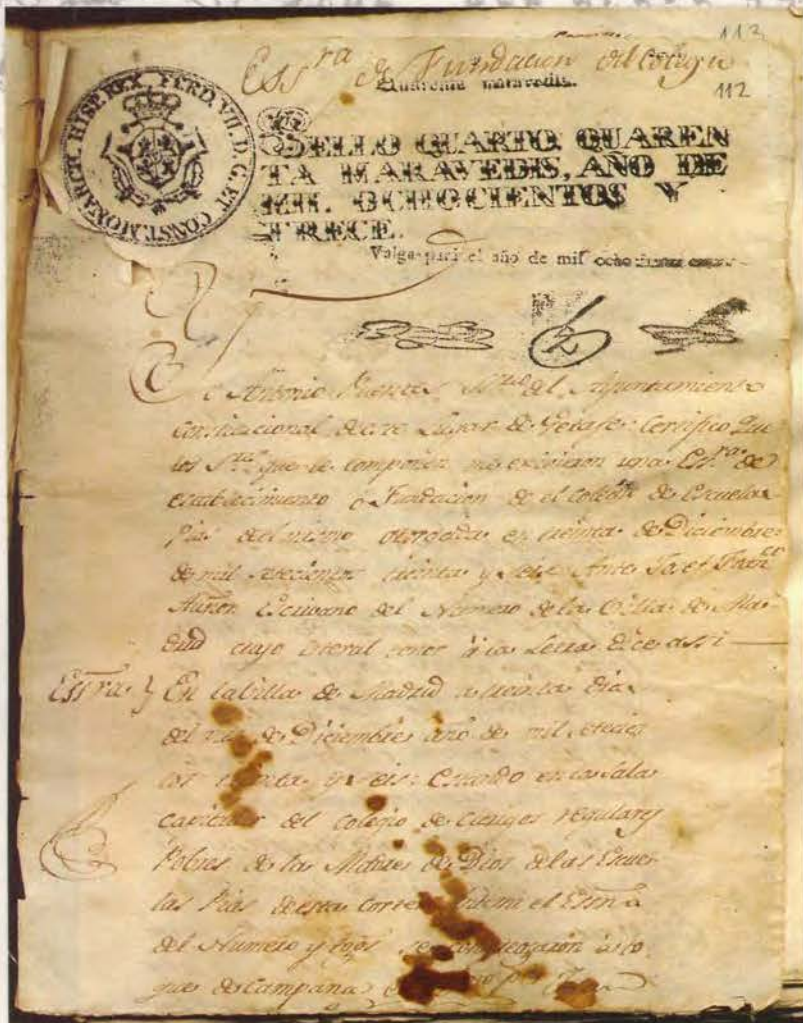 112
Ess.ra de Fundacion del Colegio
Quarenta maravedis.
112
FERD. VII. D. G. ET CONST. MONARCH. HISP. REX
SELLO QUARTO, QUAREN
TA MARAVEDIS, AÑO DE
MIL OCHOCIENTOS Y
TRECE.
Valga para el año de mil ocho
Antonio del Ayuntamiento
Constitucional de este Lugar de Getafe: Certifico que
los que le componen me exivieron una Es.ra de
establecimiento o Fundacion de el Colegio de Escuelas
Pias del mismo otorgada en treinta de Diciembre
de mil setecientos treinta y seis Ante Josef
Escrivano del Numero de la Villa de Ma-
drid cuyo literal tenor à la Letra dice assi
Essra. } En la Villa de Madrid a treinta dias
del mes de Diciembre año de mil setecien
tos treinta y seis: Estando en la Sala
capitular del Colegio de Clerigos regulares
Pobres de la Madre de Dios de las Escue
las Pias de esta Corte el Essno
del Numero y se congregaron à to
que de Campana